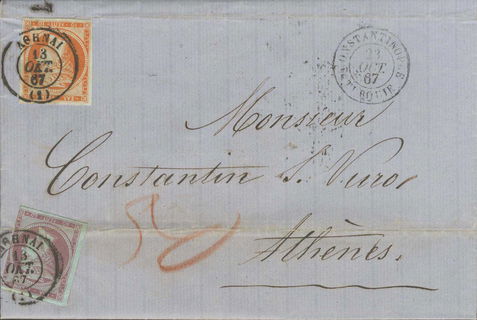 ΑΘΗΝΑΙ
13
ΟΚΤ.
67
(1)
CONSTANTINOPLE
22
OCT.
67
TURQUIE
Monsieur
Constantin S. Vuro,
Athènes.
ΑΘΗΝΑΙ
13
ΟΚΤ.
67
(1)